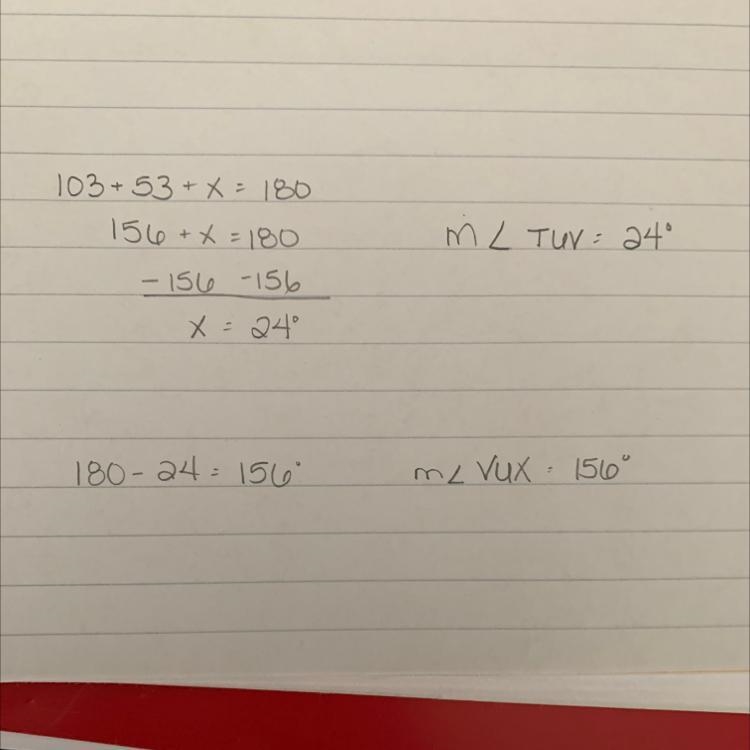 103 + 53 + x = 180
156 + x = 180
m∠ TUV = 24°
- 156 - 156
x = 24°
180 - 24 = 156°
m∠ VUX = 156°